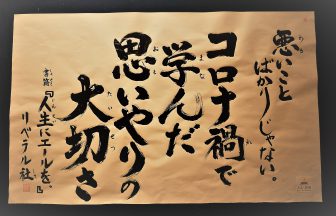 悪いこと
ばかりじゃない。
コロナ禍で
学んだ
思いやりの
大切さ
書籍『人生にエールを。』
リベラル社